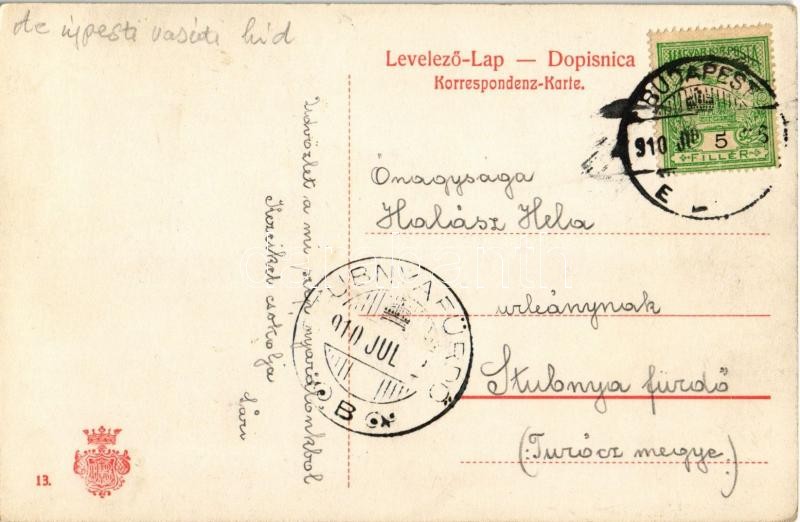 Az ujpesti vasúti híd
Levelező-Lap — Dopisnica
Korrespondenz-Karte.
MAGYAR KIR. POSTA
5
FILLÉR
BUDAPEST
910 JUL
E
Önagysága
Halász Hela
urleánynak
Stubnya fürdő
(:Turócz megye:)
Üdvözlet a mi szép nyaralónkból
Kezeiket csókolja
Sári
STUBNYAFÜRDŐ
910 JUL
B
13.